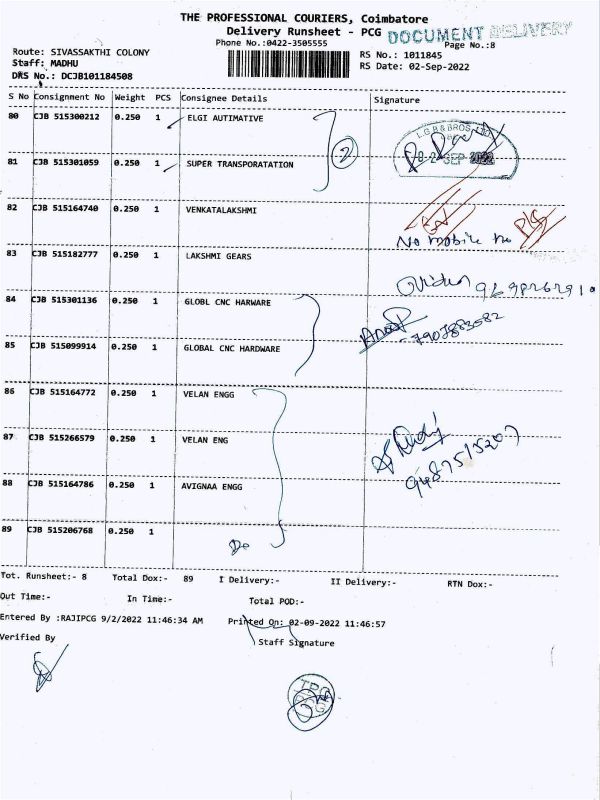 THE PROFESSIONAL COURIERS, Coimbatore
Delivery Runsheet - PCG
DOCUMENT DELIVERY
Phone No.:0422-3505555
Page No.:8
Route: SIVASSAKTHI COLONY
RS No.: 1011845
Staff: MADHU
RS Date: 02-Sep-2022
DRS No.: DCJB101184508
S No Consignment No Weight PCS Consignee Details Signature
80 CJB 515300212 0.250 1 ELGI AUTIMATIVE
L.G.B & BROS. LTD
2
81 CJB 515301059 0.250 1 SUPER TRANSPORATATION
0 2 SEP 2022
82 CJB 515164740 0.250 1 VENKATALAKSHMI
No mobile no
83 CJB 515182777 0.250 1 LAKSHMI GEARS
84 CJB 515301136 0.250 1 GLOBL CNC HARWARE
7907883582
85 CJB 515099914 0.250 1 GLOBAL CNC HARDWARE
86 CJB 515164772 0.250 1 VELAN ENGG
87 CJB 515266579 0.250 1 VELAN ENG
9487515207
88 CJB 515164786 0.250 1 AVIGNAA ENGG
89 CJB 515206768 0.250 1
Do
Tot. Runsheet:- 8 Total Dox:- 89 I Delivery:- II Delivery:- RTN Dox:-
Out Time:- In Time:- Total POD:-
Entered By :RAJIPCG 9/2/2022 11:46:34 AM Printed On: 02-09-2022 11:46:57
Verified By Staff Signature